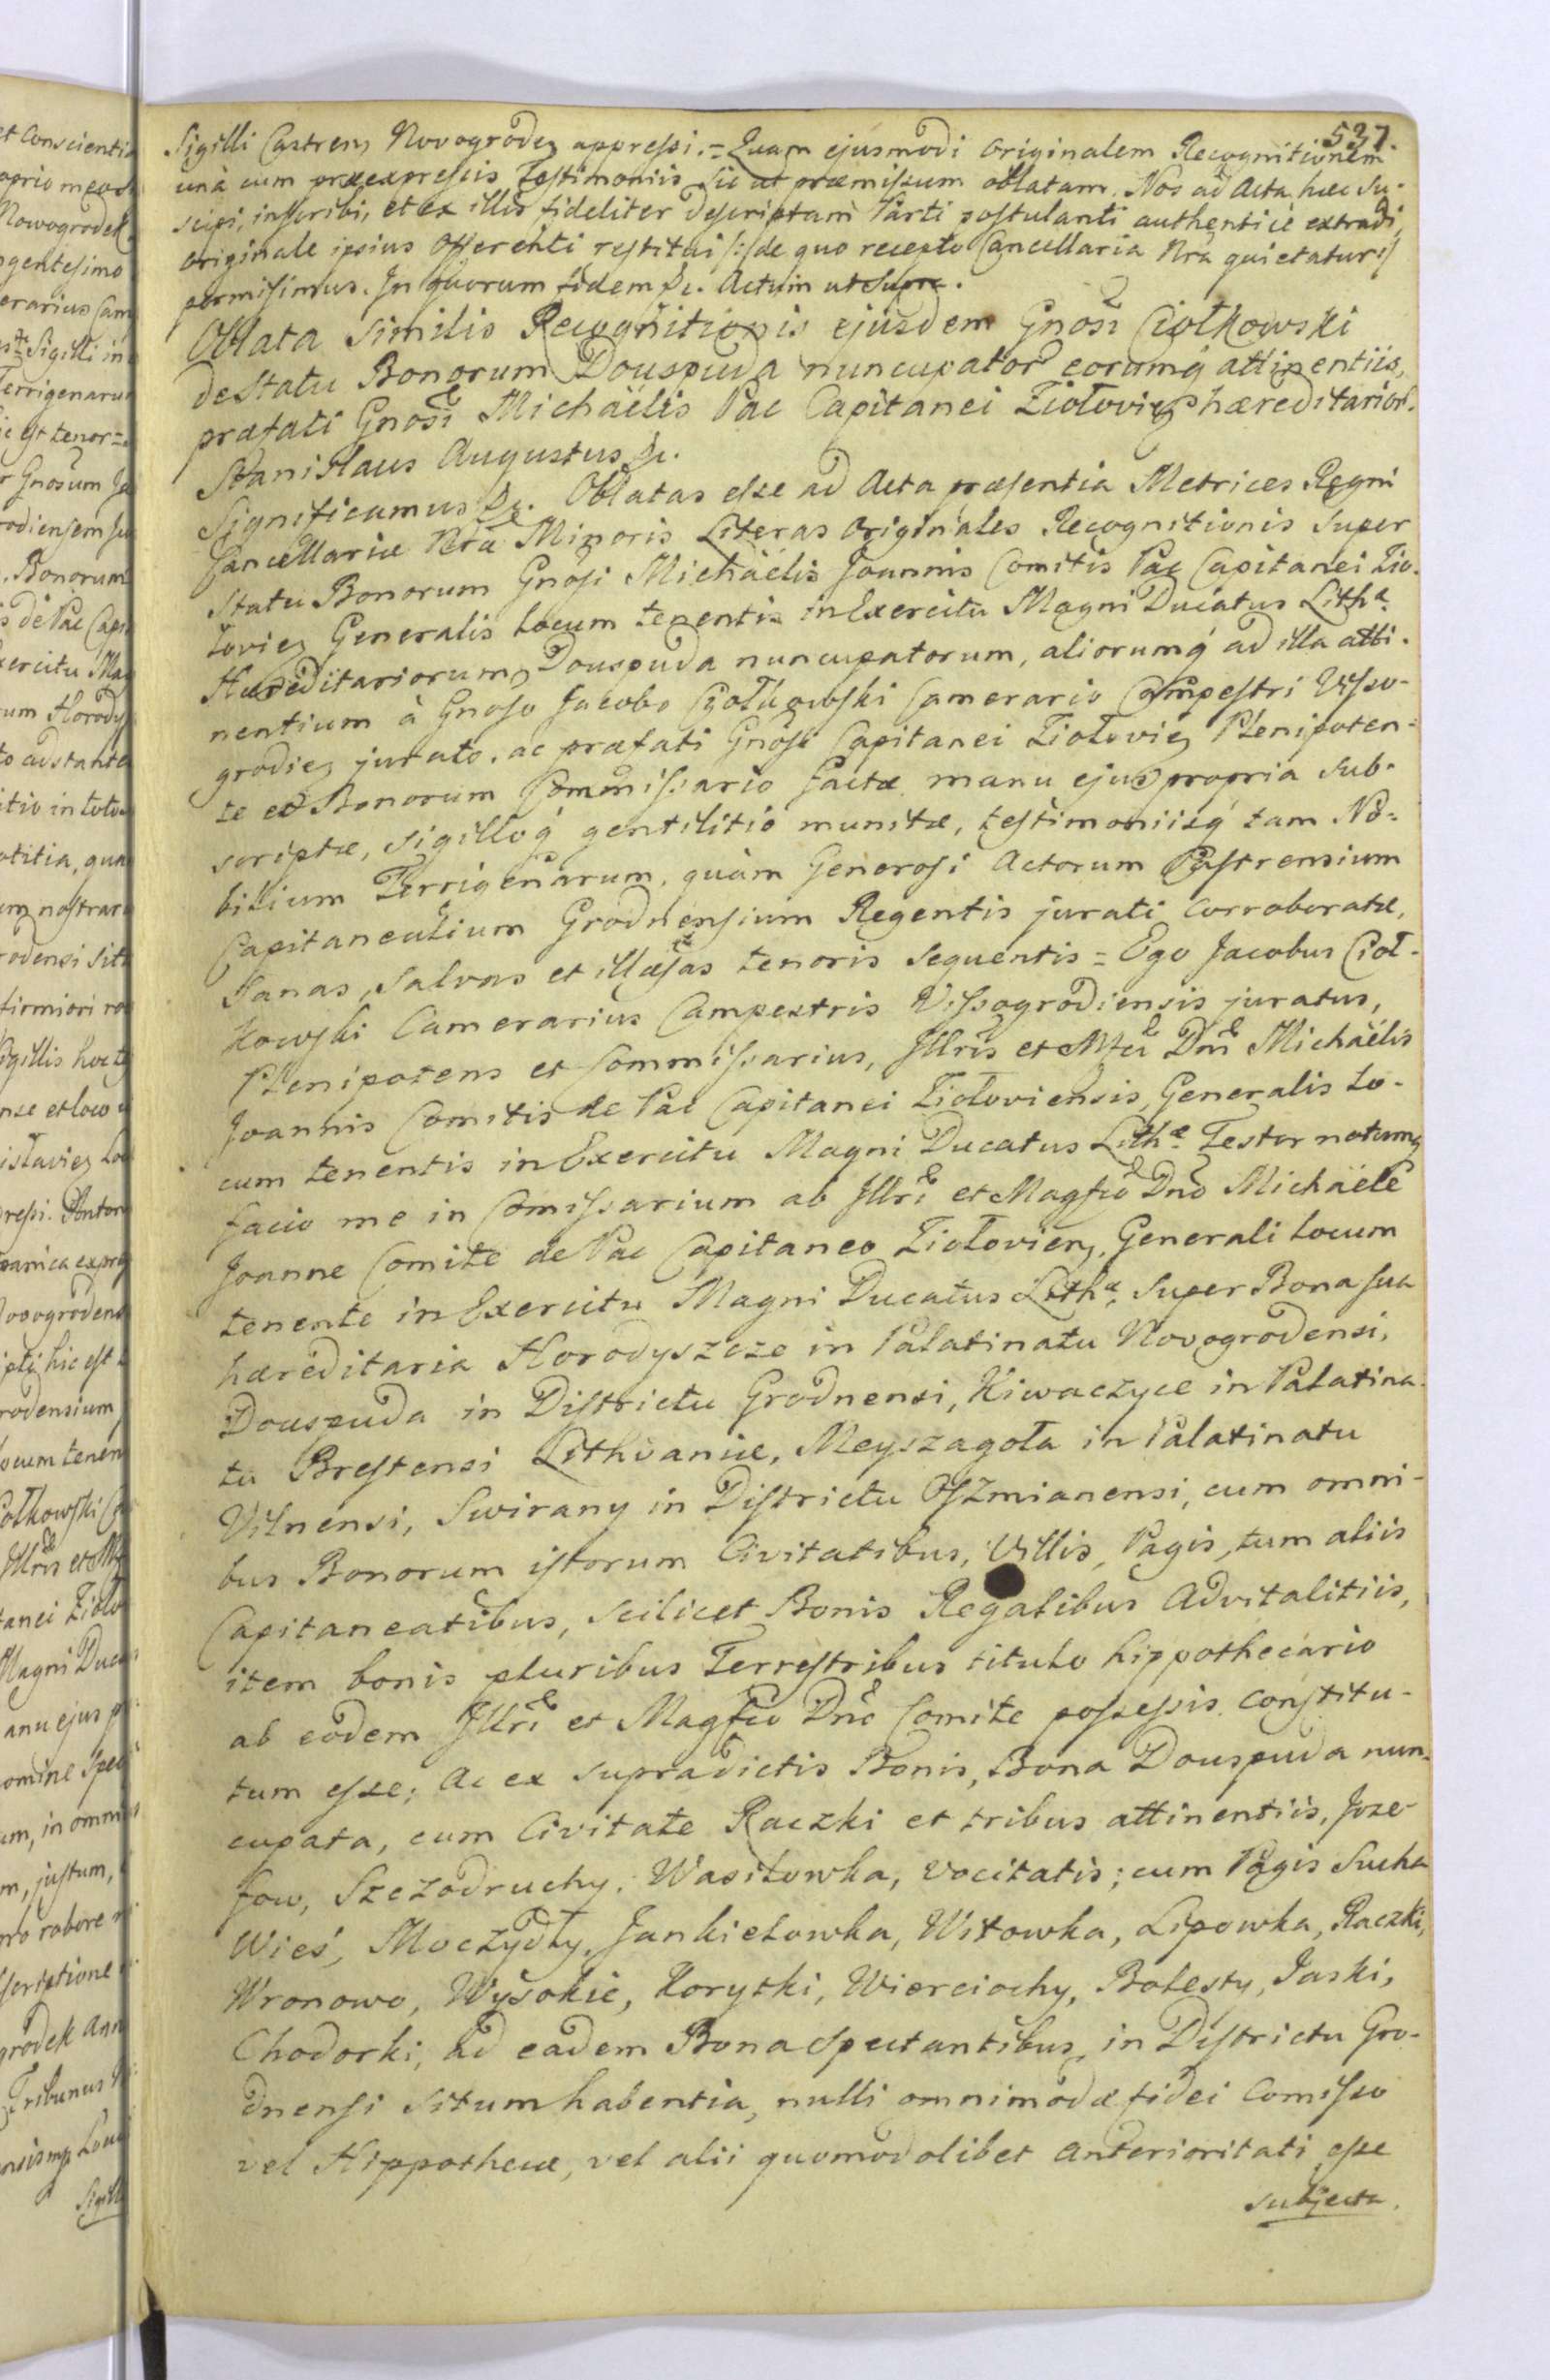 537.
Sigilli Castren, Novogrodez appressi. = Quam ejusmodi originalem Recognitionem
unà cum præexpressis Testimoniis sic ut præmissum oblatam. Nos ad Acta hæc su-
scipi, inscribi, et ex illis fideliter descriptam Parti postulanti authenticè extradi,
originale ipsius Offerenti restitui /:/ de quo recepto Cancellaria Nra quietatur :/
permisimus. In quorum fidem &c. Actum ut supra.
Oblata Similis Recognitionis ejusdem Gnosi Ciołkowski
de Statu Bonorum Douspuda nuncupator eorumq attinentiis,
præfati Gnosi Michaëlis Pac Capitanei Ziołoviez hæreditarior.
Stanislaus Augustus &c.
Significamus &c. Oblatas esse ad Acta præsentia Metrices Regni
Cancellariæ Nræ Minoris Literas Originales Recognitionis super
Statu Bonorum Gnosi Michaëlis Joannis Comitis Pac Capitanei Zio-
łoviez Generalis Locum tenentis in Exercitu Magni Ducatus Lithæ
Hæreditariorum, Douspuda nuncupatorum, aliorumq́ ad illa atti-
nentium à Gnoso Jacobo Ciołkowski Camerario Campestri Visso-
grodiez jurato, ac præfati Gnosi Capitanei Ziołoviez Plenipoten-
te et Bonorum Commissario factæ manu ejus propria sub-
scriptæ, sigilloq́ gentilitio munitæ, testimoniisq́ tam No-
bilium Terrigenarum, quàm Generosi Actorum Castrensium
Capitanealium Grodnensium Regentis jurati corroboratæ,
Sanas, salvas et illæsas tenoris sequentis = Ego Jacobus Cioł-
kowski Camerarius Campestris Vissogrodiensis juratus,
Plenipotens et Commissarius, Illris et Mfci Dni Michaëlis
Joannis Comitis de Pac Capitanei Ziołoviensis, Generalis Lo-
cum tenentis in Exercitu Magni Ducatus Lithæ Testor notumq
facio me in Comissarium ab Illri et Magfco Dno Michaële
Joanne Comite de Pac Capitaneo Ziołovien, Generali Locum
tenente in Exercitu Magni Ducatus Lithæ, super Bona sua
hæreditaria Horodyszcze in Palatinatu Novogrodensi,
Douspuda in Districtu Grodnensi, Kiwaczyce in Palatina-
tu Brestensi Lithvaniæ, Meyszagoła in Palatinatu
Vilnensi, Swirany in Districtu Oszmianensi, cum omni-
bus Bonorum istorum Civitatibus, Villis, Pagis, tum aliis
Capitaneatibus, scilicet Bonis Regalibus Advitalitiis,
item bonis pluribus Terrestribus titulo hippothecario
ab eodem Illri et Magfco Dno Comite possessis constitu-
tum esse; Ac ex supradictis Bonis, Bona Douspuda nun-
cupata, cum Civitate Raczki et tribus attinentiis, Joze-
fow, Szczodruchy, Wasilowka, vocitatis; cum Pagis Sucha
Wieś, Moczydły, Jankielowka, Witowka, Lipowka, Raczki,
Wronowo, Wysokie, Korytki, Wierciochy, Bolesty, Jaski,
Chodorki, ad eadem Bona spectantibus in Districtu Gro-
dnensi situm habentia, nulli omnimodæ fidei Comisso
vel Hippothecæ, vel alii quomodolibet anterioritati esse
subjecta.